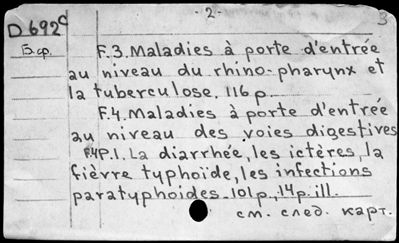 - 2 -
3
D 692c
Б.ф.
F.3. Maladies à porte d'entrée
au niveau du rhino-pharynx et
la tuberculose. 116 p.
F.4. Maladies à porte d'entrée
au niveau des voies digestives
F.4 P.1. La diarrhée, les ictères, la
fièvre typhoïde, les infections
paratyphoides. 101 p., 14 p. ill.
см. след. карт.